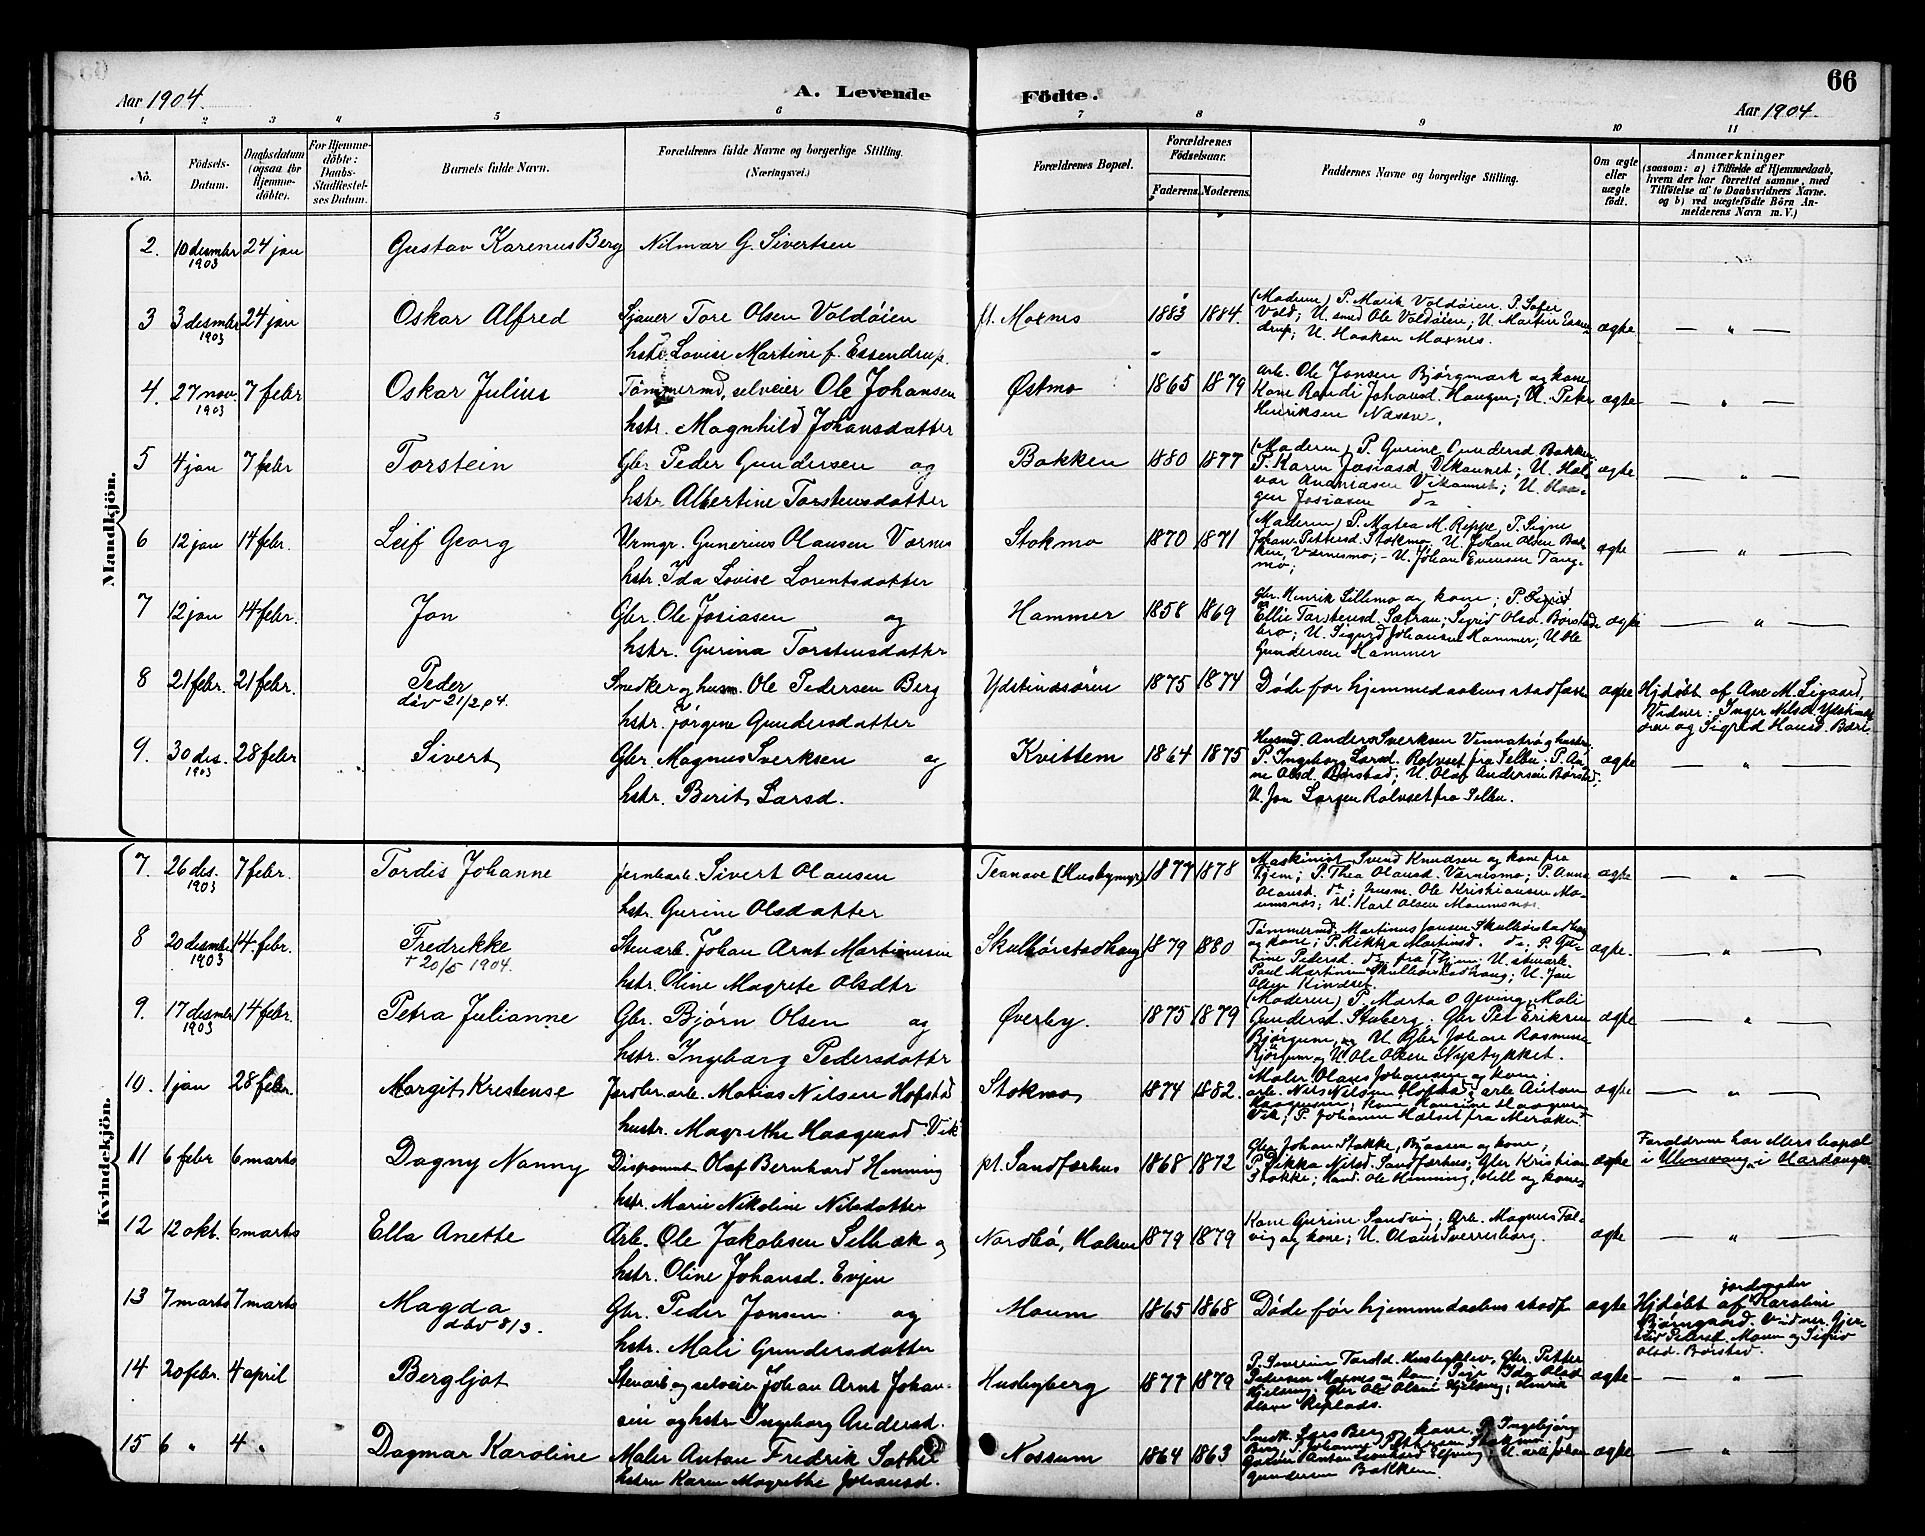 Aar 1904.
A. Levende Födte.
66
Aar 1904.
1 2 3 4 5 6 7 8 9 10 11
No.
Födsels-
Datum.
Daabsdatum
(ogsaa for
Hjemme-
døbte).
For Hjemme-
døbte:
Daabs-
Stadfæstel-
ses Datum.
Barnets fulde Navn.
Forældrenes fulde Navne og borgerlige Stilling.
(Næringsvei.)
Forældrenes Bopæl.
Forældrenes
Födselsaar.
Faderens. Moderens.
Faddernes Navne og borgerlige Stilling.
Om ægte
eller
uægte
født.
Anmærkninger
(saasom: a) i Tilfælde af Hjemmedaab,
hvem der har forrettet samme, med
Tilføielse af to Daabsvidners Navne.
og b) ved uægtefödte Börn An-
melderens Navn m. V.)
Mandkjön.
2. 10 desmbr 24 jan Gustav Karenus Berg Nilmar G. Sivertsen
1903
3 3 desmber 24 jan Oskar Alfred Sjauer Tore Olsen Voldøien
1903
hstr. Lovise Martine f. Essendrup.
pt. Moxnes 1883 1884.
(Moderen) P. Marit Voldøien P.
Vold; U. smed Ole Voldøien; U. Martin Essen-
drup; U. Haakon Moxnes.
ægte — " —
4. 27 nov. 7 febr Oskar Julius Tømmermd, selveier Ole Johansen
1903
hstr. Magnhild Johansdatter
Østmo 1865 1879
arb. Ole Jonsen Bjørgmark og kone
Kone Randi Johansd. Haugen; U. Peter
Henriksen Næsse.
ægte — " —
5 4 jan 7 febr Torstein Gbr Peder Gundersen og
hstr. Albertine Torstensdatter
Bakken 1880 1877
(Moderen) P. Gurine Gundersd Bakken.
P. Karen Josiasd. Vikannet; U. Hal-
vor Ananiasen Vikannet; U. Haa-
gen Josiasen do
ægte — " —
6 12 jan 14 febr. Leif Georg Urmgr. Gunerius Olausen Værnes
hstr. Ida Lovise Lorentsdatter
Stokmo 1870 1871
(Moderen) P. Matea M. Reppe, P. Signe
Johan Pettersd. Stokmo U. Johan Olsen Bak-
ken, Værnesmo; U. Johan Evensen Tang-
mo;
ægte — " —
7 12 jan 14 febr. Jon Gbr. Ole Josiasen og
hstr. Gurina Torstensdatter
Hammer 1858 1869
Gbr. Henrik Sillemo og kone; P. Sigrid
Ellie Torstensd. Sætran; Sigrid Olsd. Børstad-
bro; U. Sigurd Johansen Hammer; U. Ole
Gundersen Hammer
ægte — " —
8 21 febr. 21 febr. Peder Snedker og husm. Ole Pedersen Berg
døv 21/2 04.
hstr. Jørgine Gundersdatter
Ydstinesøren 1875 1874 Døde før hjemmedaabens stadfæst ægte
Hjdøbt af Ane M. Ligaard,
Vidner: Inger Nilsd. Ydstines-
øren og Sigrid Hansd. Bæri
9. 30 des. 28 febr Sivert Gbr. Magnus Sverksen og
1903
hstr. Berit Larsd.
Kvittem 1864 1875
Husmd. Anders Sverksen Vinnatrø og hustru;
P. Ingeborg Larsd. Rolvset fra Selbu; P. An-
ne Olsd. Børstad; U. Olaf Andersen Børstad;
U. Jon Larsen Rolvset fra Selbu.
ægte — " —
Kvindekjön.
7. 26 des. 7 febr. Tordis Johanne jernbarb. Sivert Olausen
1903
hstr. Gurine Olsdatter
Teanave (Husbymyr) 1877 1878
Maskinist Svend Knudsen og kone fra
Thjem; P. Thea Olausd. Værnesmo; P. Anna
Olausd. do; husm. Ole Kristiansen Mo-
umsnes; U. Karl Olsen Moumsnes.
ægte — " —
8 20 desmbr 14 febr. Fredrikke Stenarb. Johan Arnt Martinussen
1903 † 20/5 1904.
hstr. Oline Magrete Olsdtr
Skulbørstadhaug 1879 1880
Tømmermd. Martinus Jonsen Skulbørstadhaug
og kone; P. Rikka Martinsd. do; P. Gu-
rine Pedersd. do fra Thjem; U. stenarb.
Paul Martinsen Skulbørstadhaug; U. Jon
Olsen Kindset.
ægte. — " —
9. 17 desmbr 14 febr. Petra Julianne Gbr. Bjørn Olsen og
1903
hstr. Ingeborg Pedersdatter
Øverby. 1875 1879
(Moderen) P. Marta O Geving; Mali
Gundersd. Stuberg; Gbr Per Eriksen
Bjørgum, og U. Gbr Johan Rasmusen
Bjørgum og U. Ole Olsen Nystykket.
ægte — " —
10. 1 jan 28 febr. Margit Kristense Jordbrarb. Matias Nilsen Hofstad
hustr. Magrethe Haagensd. Vik
Stokmo 1874 1882.
Maler Olaus Johansen og kone;
arb. Nils Nilsen Hofstad; arb Anton
Haagensen; kone Haagensen
Vik; P. Johanna Halset fra Meraker
ægte — " —
11 6 febr 6 marts Dagny Nanny Disponent Olaf Bernhard Henning
hstr. Marie Nikoline Nilsdatter
pt. Sandfærhus 1868 1872
Gbr Johan Stokke, Bjaasen og kone;
P. Rikka Nilsd. Sandfærhus; Gbr Kristian
Stokke; Hand. Ole Henning, Hell og kone
ægte
Forældrene har ellers bopæl
i Ullensvang i Hardanger
12 12 okt. 6 marts Ella Anette Arb. Ole Jakobsen Selbæk og
hstr. Oline Johansd. Evjen
Nordbø, Halsen 1879 1879
Kone Gurine Sandvig; Arb. Magnus Fol-
vig og kone; U. Olaus Sverresborg.
ægte — " —
13 7 marts 7 marts Magda Gbr. Peder Jonsen og
døv 8/3.
hstr. Mali Gundersdatter
Moum 1865 1868 Døde før hjemmedaabens stadf ægte
jordmoder
Hjdøbt af Karoline
Bjørngaard. Vidner. Gjer-
trud Petersd. Moum og Sigrid
Olsd. Børstad.
14 20 febr. 4 april Bergljot Stenarb og selveier Johan Arnt Johan-
sen og hstr Ingeborg Andersd.
Husbyberg 1877 1879
P. Severine Tordd. Husbyklev, Gbr. Petter
Pedersen Moxnes og kone; Pige Ida Olsd
Hjelseng; Gbr Ole Olsen Hjelseng; Henrik
Olsen Replads.
ægte — " —
15 6 " 4 " Dagmar Karoline Maler Anton Fredrik Sæther
hstru Karen Magrethe Johansd.
Nossum 1864 1863
Snedk. Lars Berg og kone, P. Ingebjørg
Berg, P. Johanna Pettersen Stokmo;
Anton Leonhard Elfving, U. arb Johan
Gundersen Bakken.
ægte — " —